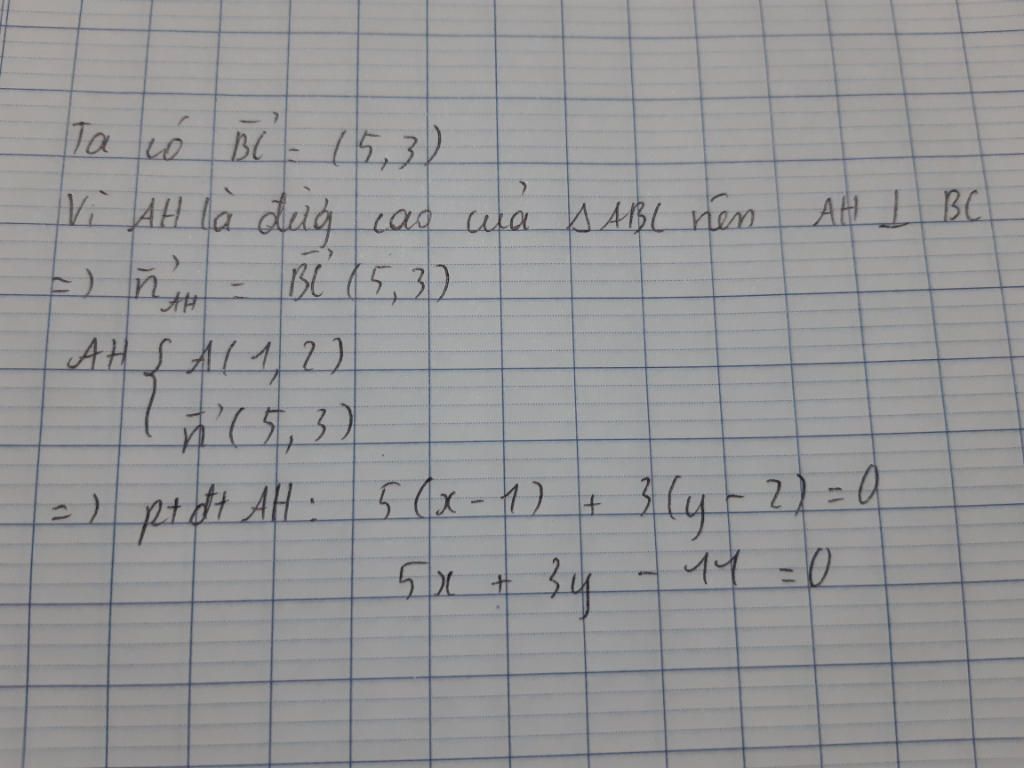 Ta có B͞C⃗ = (5,3)
Vì AH là đường cao của ΔABC nên AH ⊥ BC
=> n⃗_AH = BC⃗ (5,3)
AH { A(1,2)
n⃗ (5,3)
=> ptđt AH: 5(x-1) + 3(y-2) = 0
5x + 3y - 11 = 0